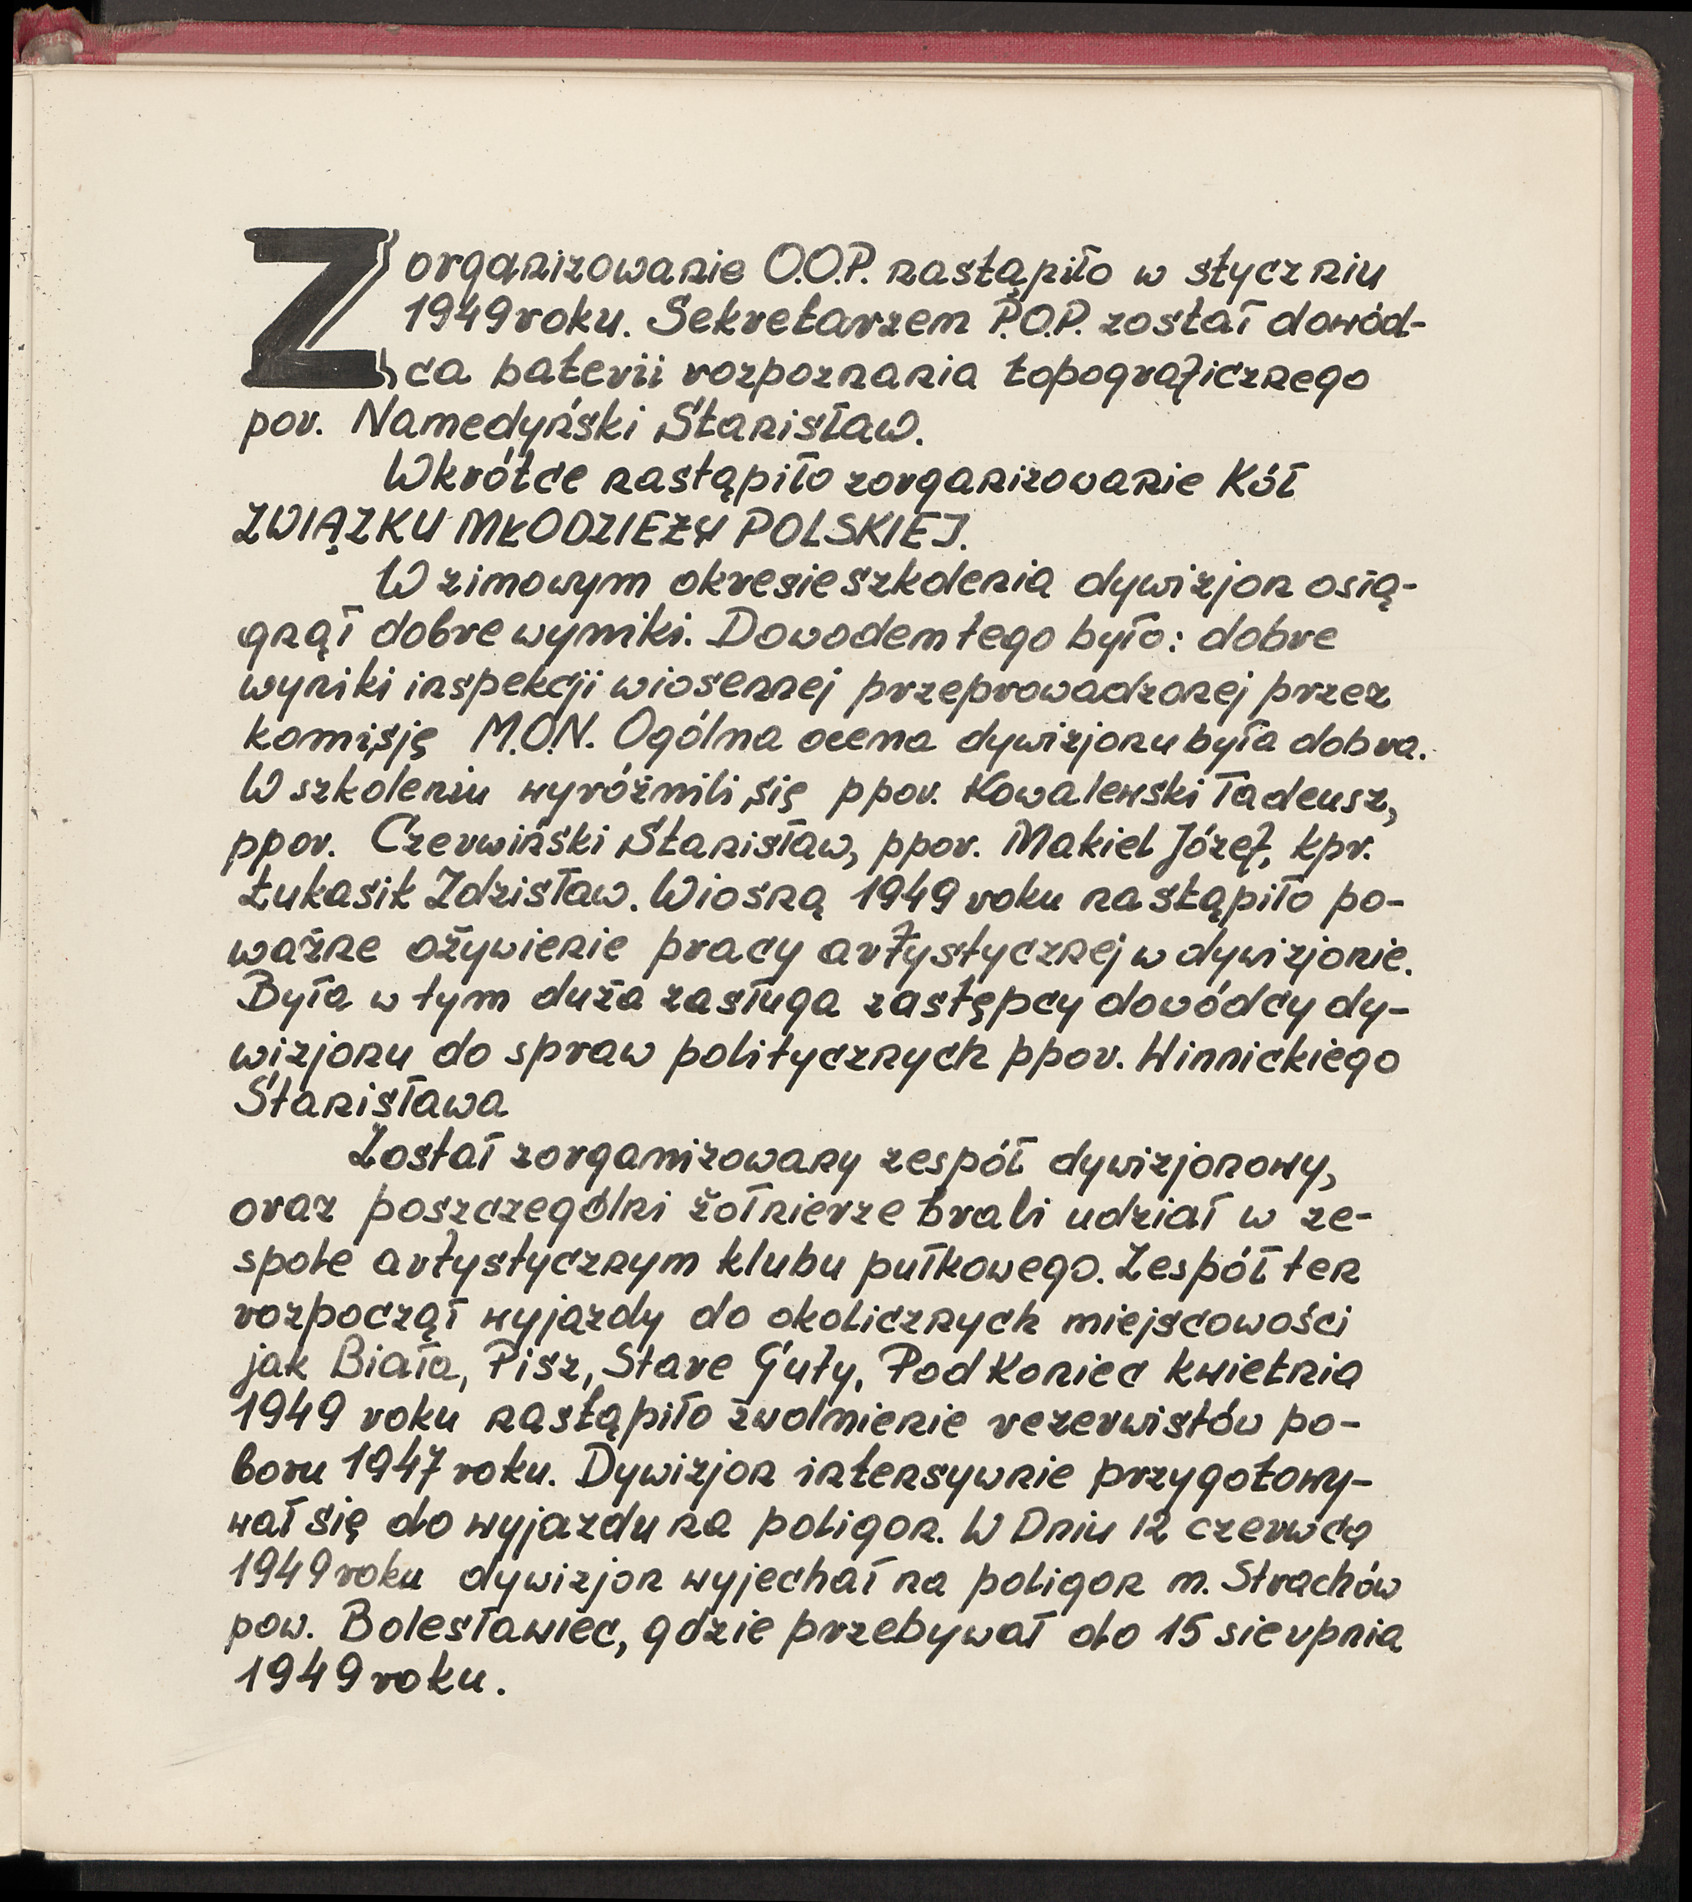 Zorganizowanie O.O.P. nastąpiło w styczniu
1949 roku. Sekretarzem P.O.P. został dowód-
ca baterii rozpoznania topograficznego
por. Namedyński Stanisław.
Wkrótce nastąpiło zorganizowanie Kół
ZWIĄZKU MŁODZIEŻY POLSKIEJ.
W zimowym okresie szkolenia dywizjon osią-
gnął dobre wyniki. Dowodem tego było: dobre
wyniki inspekcji wiosennej przeprowadzonej przez
komisję M.O.N. Ogólna ocena dywizjonu była dobra.
W szkoleniu wyróżnili się ppor. Kowalewski Tadeusz,
ppor. Czerwiński Stanisław, ppor. Makiel Józef, kpr.
Łukasik Zdzisław. Wiosną 1949 roku nastąpiło po-
ważne ożywienie pracy artystycznej w dywizjonie.
Była w tym duża zasługa zastępcy dowódcy dy-
wizjonu do spraw politycznych ppor. Winnickiego
Stanisława
Został zorganizowany zespół dywizjonowy,
oraz poszczególni żołnierze brali udział w ze-
spole artystycznym klubu pułkowego. Zespół ten
rozpoczął wyjazdy do okolicznych miejscowości
jak Biała, Pisz, Stare Guty, Pod Koniec kwietnia
1949 roku nastąpiło zwolnienie rezerwistów po-
boru 1947 roku. Dywizjon intensywnie przygotowy-
wał się do wyjazdu na poligon. W Dniu 12 czerwca
1949 roku dywizjon wyjechał na poligon m. Strachów
pow. Bolesławiec, gdzie przebywał do 15 sierpnia
1949 roku.